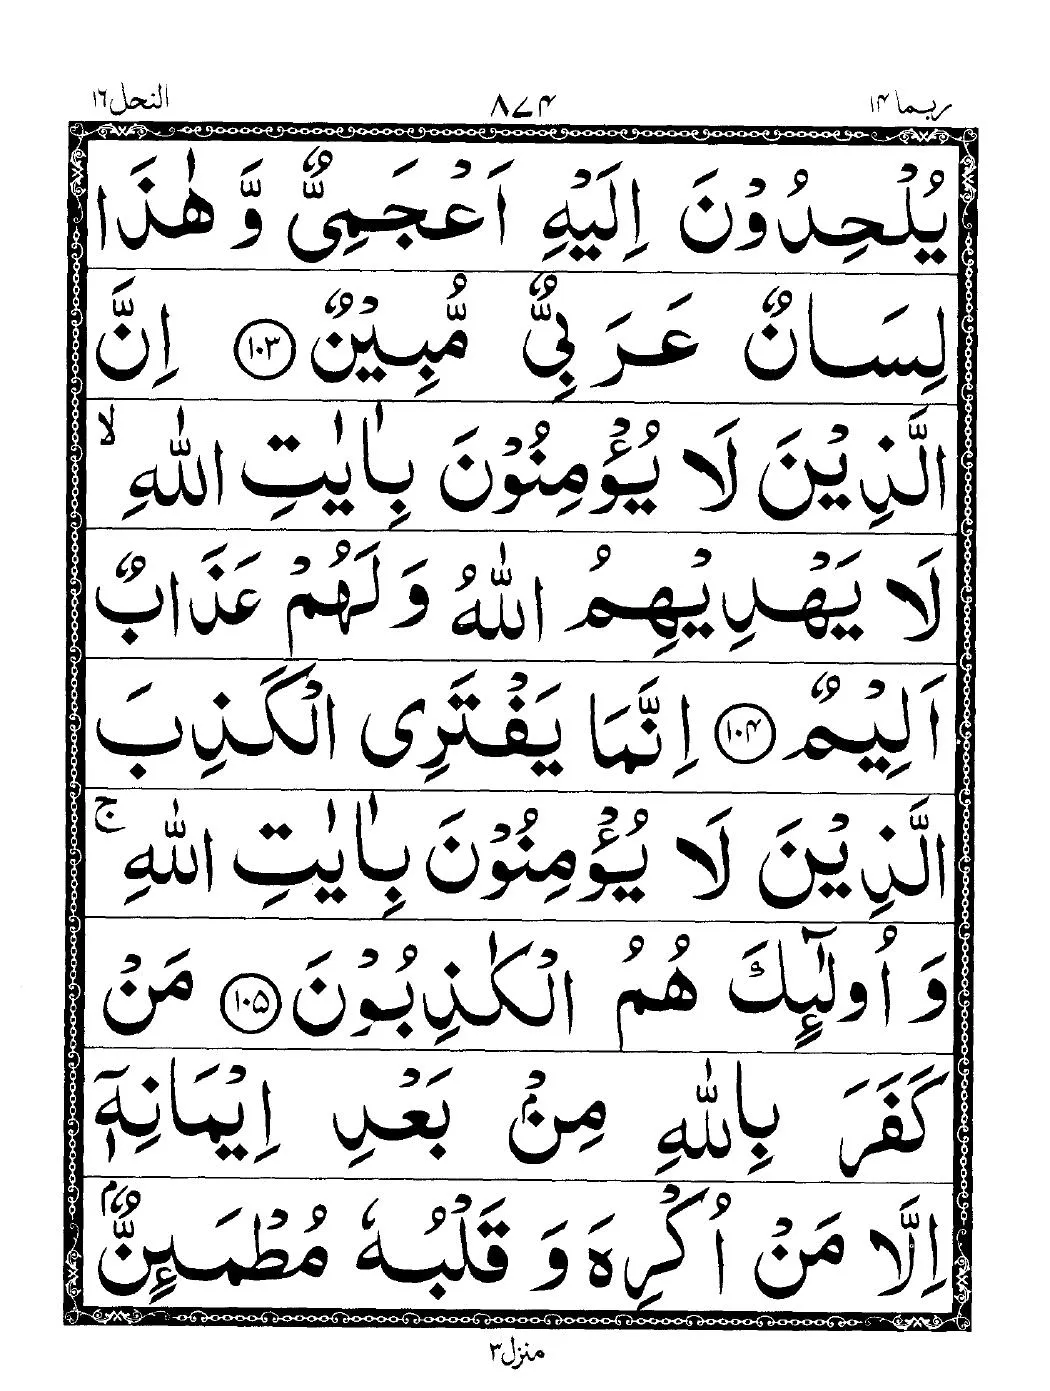 ربما ۱۴
۸۷۴
النحل ۱۶
يُلْحِدُوْنَ اِلَيْهِ اَعْجَمِىٌّ وَّ هٰذَا
لِسَانٌ عَرَبِىٌّ مُّبِيْنٌ ۱۰۳ اِنَّ
الَّذِيْنَ لَا يُؤْمِنُوْنَ بِاٰيٰتِ اللّٰهِ ۙ
لَا يَهْدِيْهِمُ اللّٰهُ وَ لَهُمْ عَذَابٌ
اَلِيْمٌ ۱۰۴ اِنَّمَا يَفْتَرِى الْكَذِبَ
الَّذِيْنَ لَا يُؤْمِنُوْنَ بِاٰيٰتِ اللّٰهِ ۚ
وَ اُولٰٓئِكَ هُمُ الْكٰذِبُوْنَ ۱۰۵ مَنْ
كَفَرَ بِاللّٰهِ مِنْۢ بَعْدِ اِيْمَانِهٖٓ
اِلَّا مَنْ اُكْرِهَ وَ قَلْبُهٗ مُطْمَئِنٌّۢ
منزل ۳